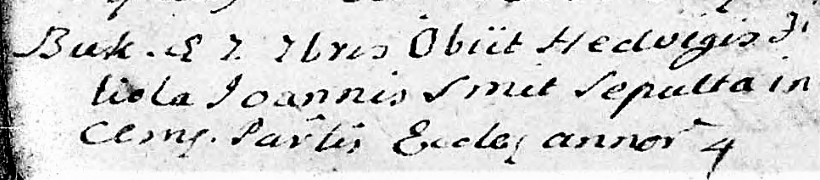 Buk. E 7. 7bris Obiit Hedvigis Fi
liola Joannis Smit Sepulta in
Cemy. Partis Eccley annor 4